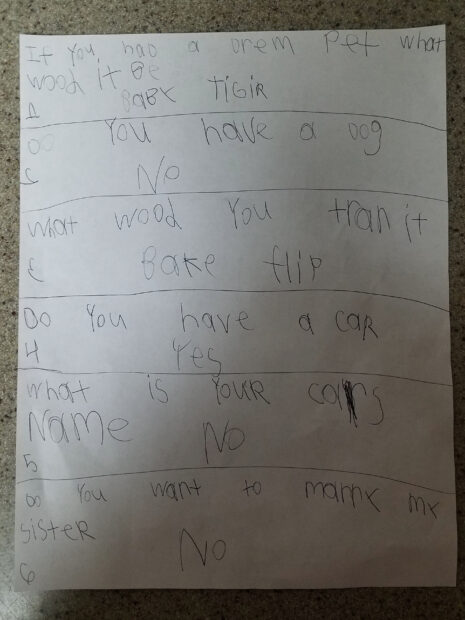 If you had a drem pet what
wood it be
1 BaBY TIGIR
Do you have a dog
2 No
what wood you tran it
3 Bake flip
Do you have a caR
4 Yes
what is youR cars
Name No
5
Do you want to marry my
sisteR No
6